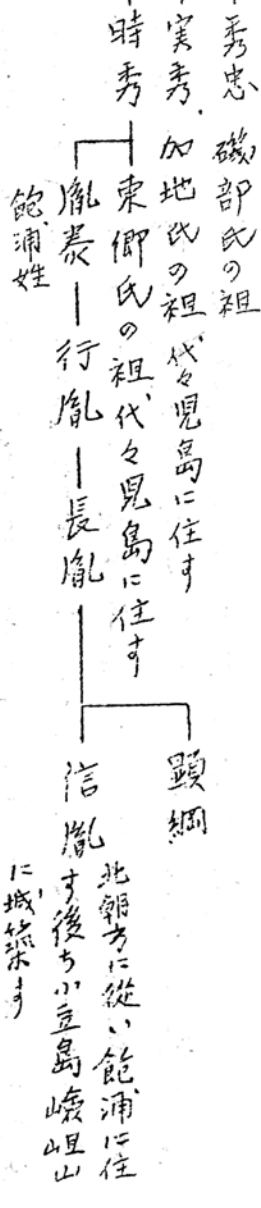 秀忠 磯部氏の祖
実秀 加地氏の祖 代々児島に住す
時秀 東郷氏の祖 代々児島に住す
胤泰 行胤 長胤
飽浦姓
顕綱
信胤
北朝方に従い飽浦に住
す後ち小豆島嶮岨山
に城築す